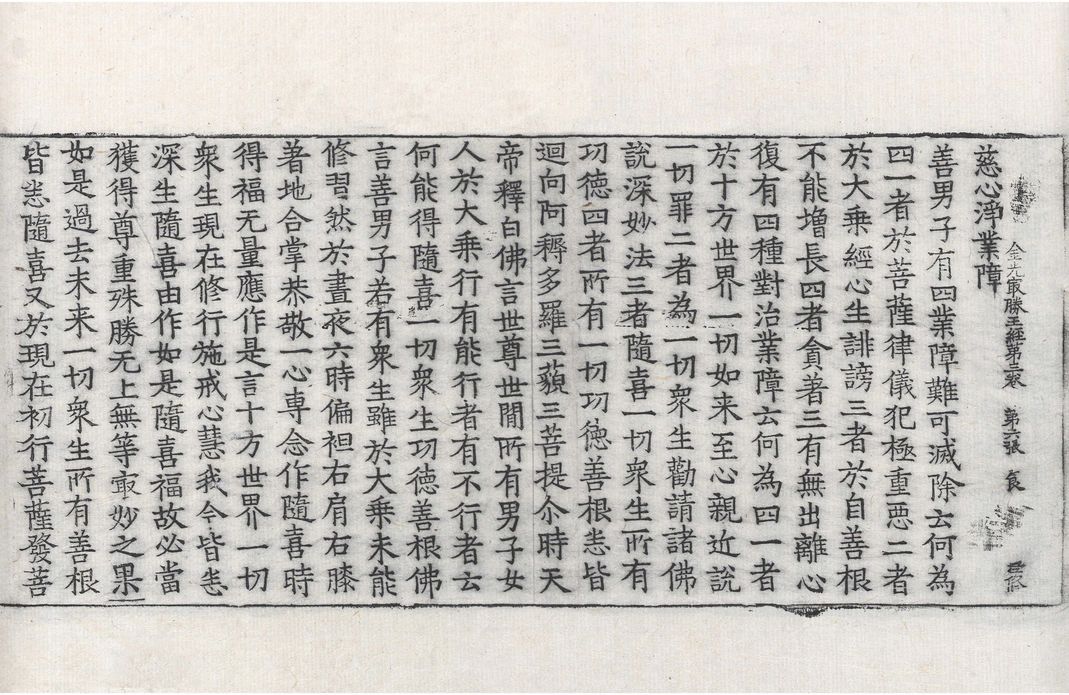 金光冣勝王經第三卷 第六張 食
慈心淨業障
善男子有四業障難可滅除云何為
四一者於菩薩律儀犯極重惡二者
於大乘經心生誹謗三者於自善根
不能增長四者貪著三有無出離心
復有四種對治業障云何為四一者
於十方世界一切如来至心親近說
一切罪二者為一切衆生勸請諸佛
說深妙法三者隨喜一切衆生所有
功德四者所有一切功德善根悉皆
迴向阿耨多羅三藐三菩提尒時天
帝釋白佛言世尊世閒所有男子女
人於大乘行有能行者有不行者云
何能得隨喜一切衆生功德善根佛
言善男子若有衆生雖於大乘未能
修習然於晝夜六時偏袒右肩右膝
著地合掌恭敬一心専念作隨喜時
得福无量應作是言十方世界一切
衆生現在修行施戒心慧我今皆悉
深生隨喜由作如是隨喜福故必當
獲得尊重殊勝无上無等冣妙之果
如是過去未来一切衆生所有善根
皆悉隨喜又於現在初行菩薩發菩